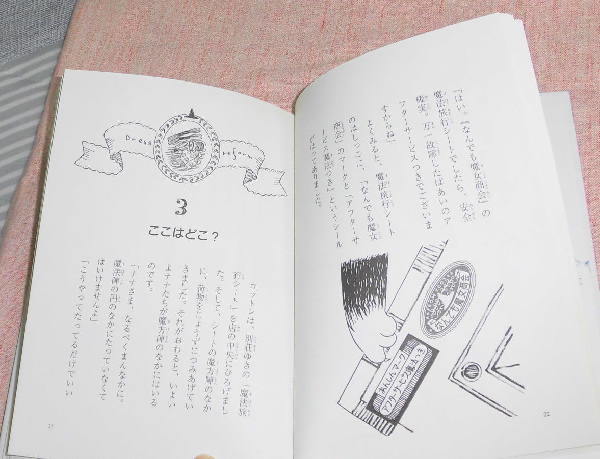 「はい。「なんでも魔女商会」の
魔法旅行シートでしたら、安全
確実。万一故障したばあいのア
フターサービスつきでございま
すからね」
よくみると、魔法旅行シート
のはしっこに、「なんでも魔女
商会」のマークと「アフターサ
ービス魔法つき」というシール
がはってありました。
なんでも魔女商会
あんしんマーク
アフターサービス魔法つき
22
Dress
reform
3
ここはどこ?
コットンは、別荘ゆきの「魔法旅
行シート」を店の中央にひろげまし
た。そして、シートの魔方陣のなか
に、荷物をじょうずにつみあげてい
きました。それがおわると、いよい
よナナたちが魔方陣のなかにはいる
のです。
「ナナさま、なるべくまんなかに。
魔法陣の円のなかにたっていなくて
はいけませんよ」
「こうやってたってるだけでいい